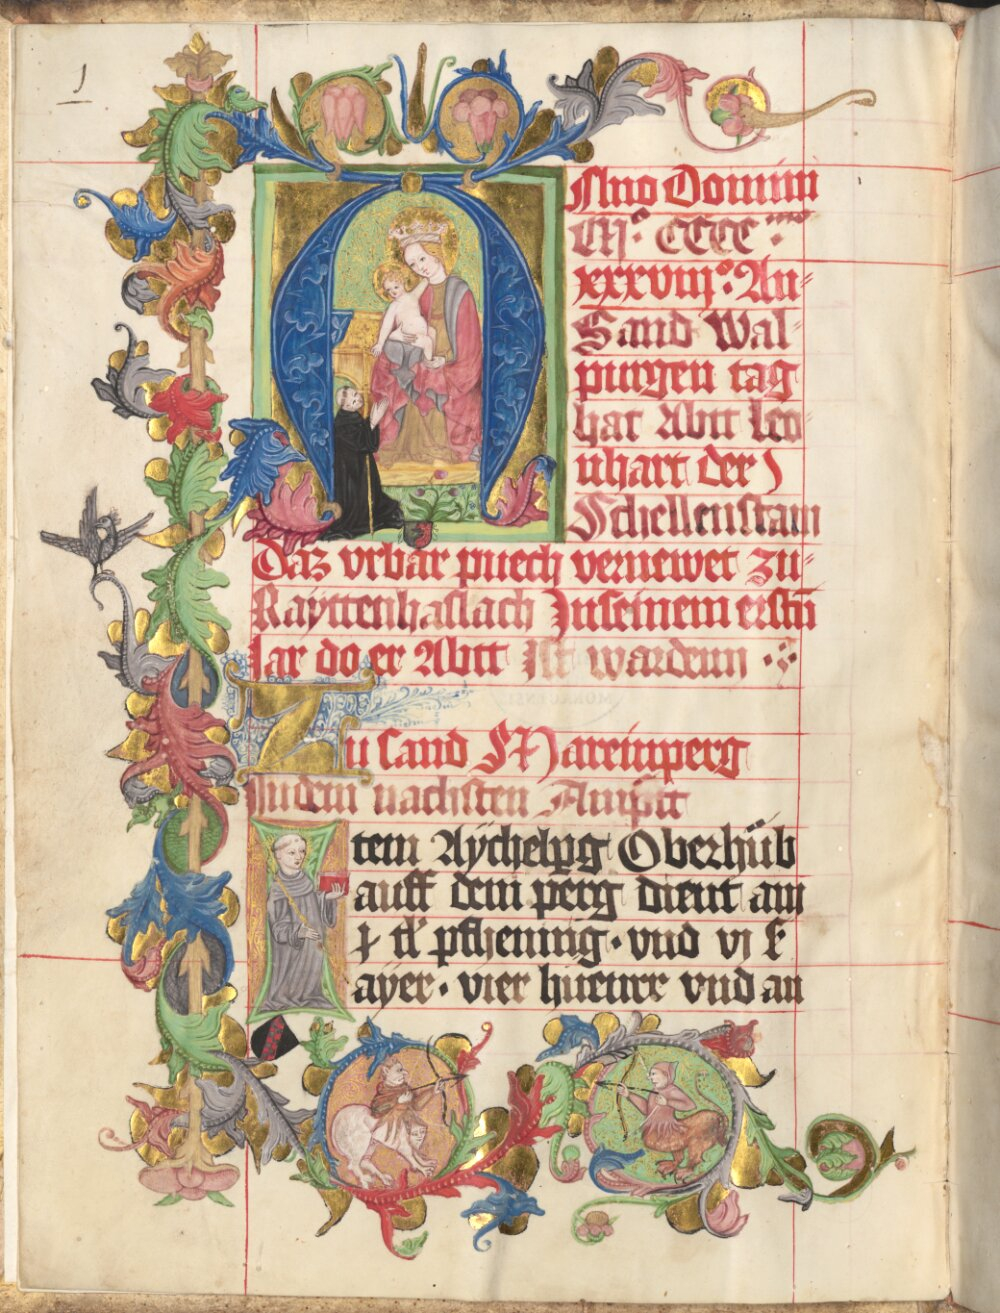 1
Anno Domini
M° CCCC°
xxxviij°· An
Sand Wal
purgen tag
hat Abtt Leo
nhart der
Schellenstain
Daz vrbar puech vernewet zu
Rayttenhaslach Jnseinem erstn
Jar do er Abtt Ist wardenn
Zu sand Mareinperg
Jndem nachsten Ampt
Item Aÿchelpg Oberhüb
auff dem perg dient am
pfhening · vnd vj
ayer · vier huenrr vnd an